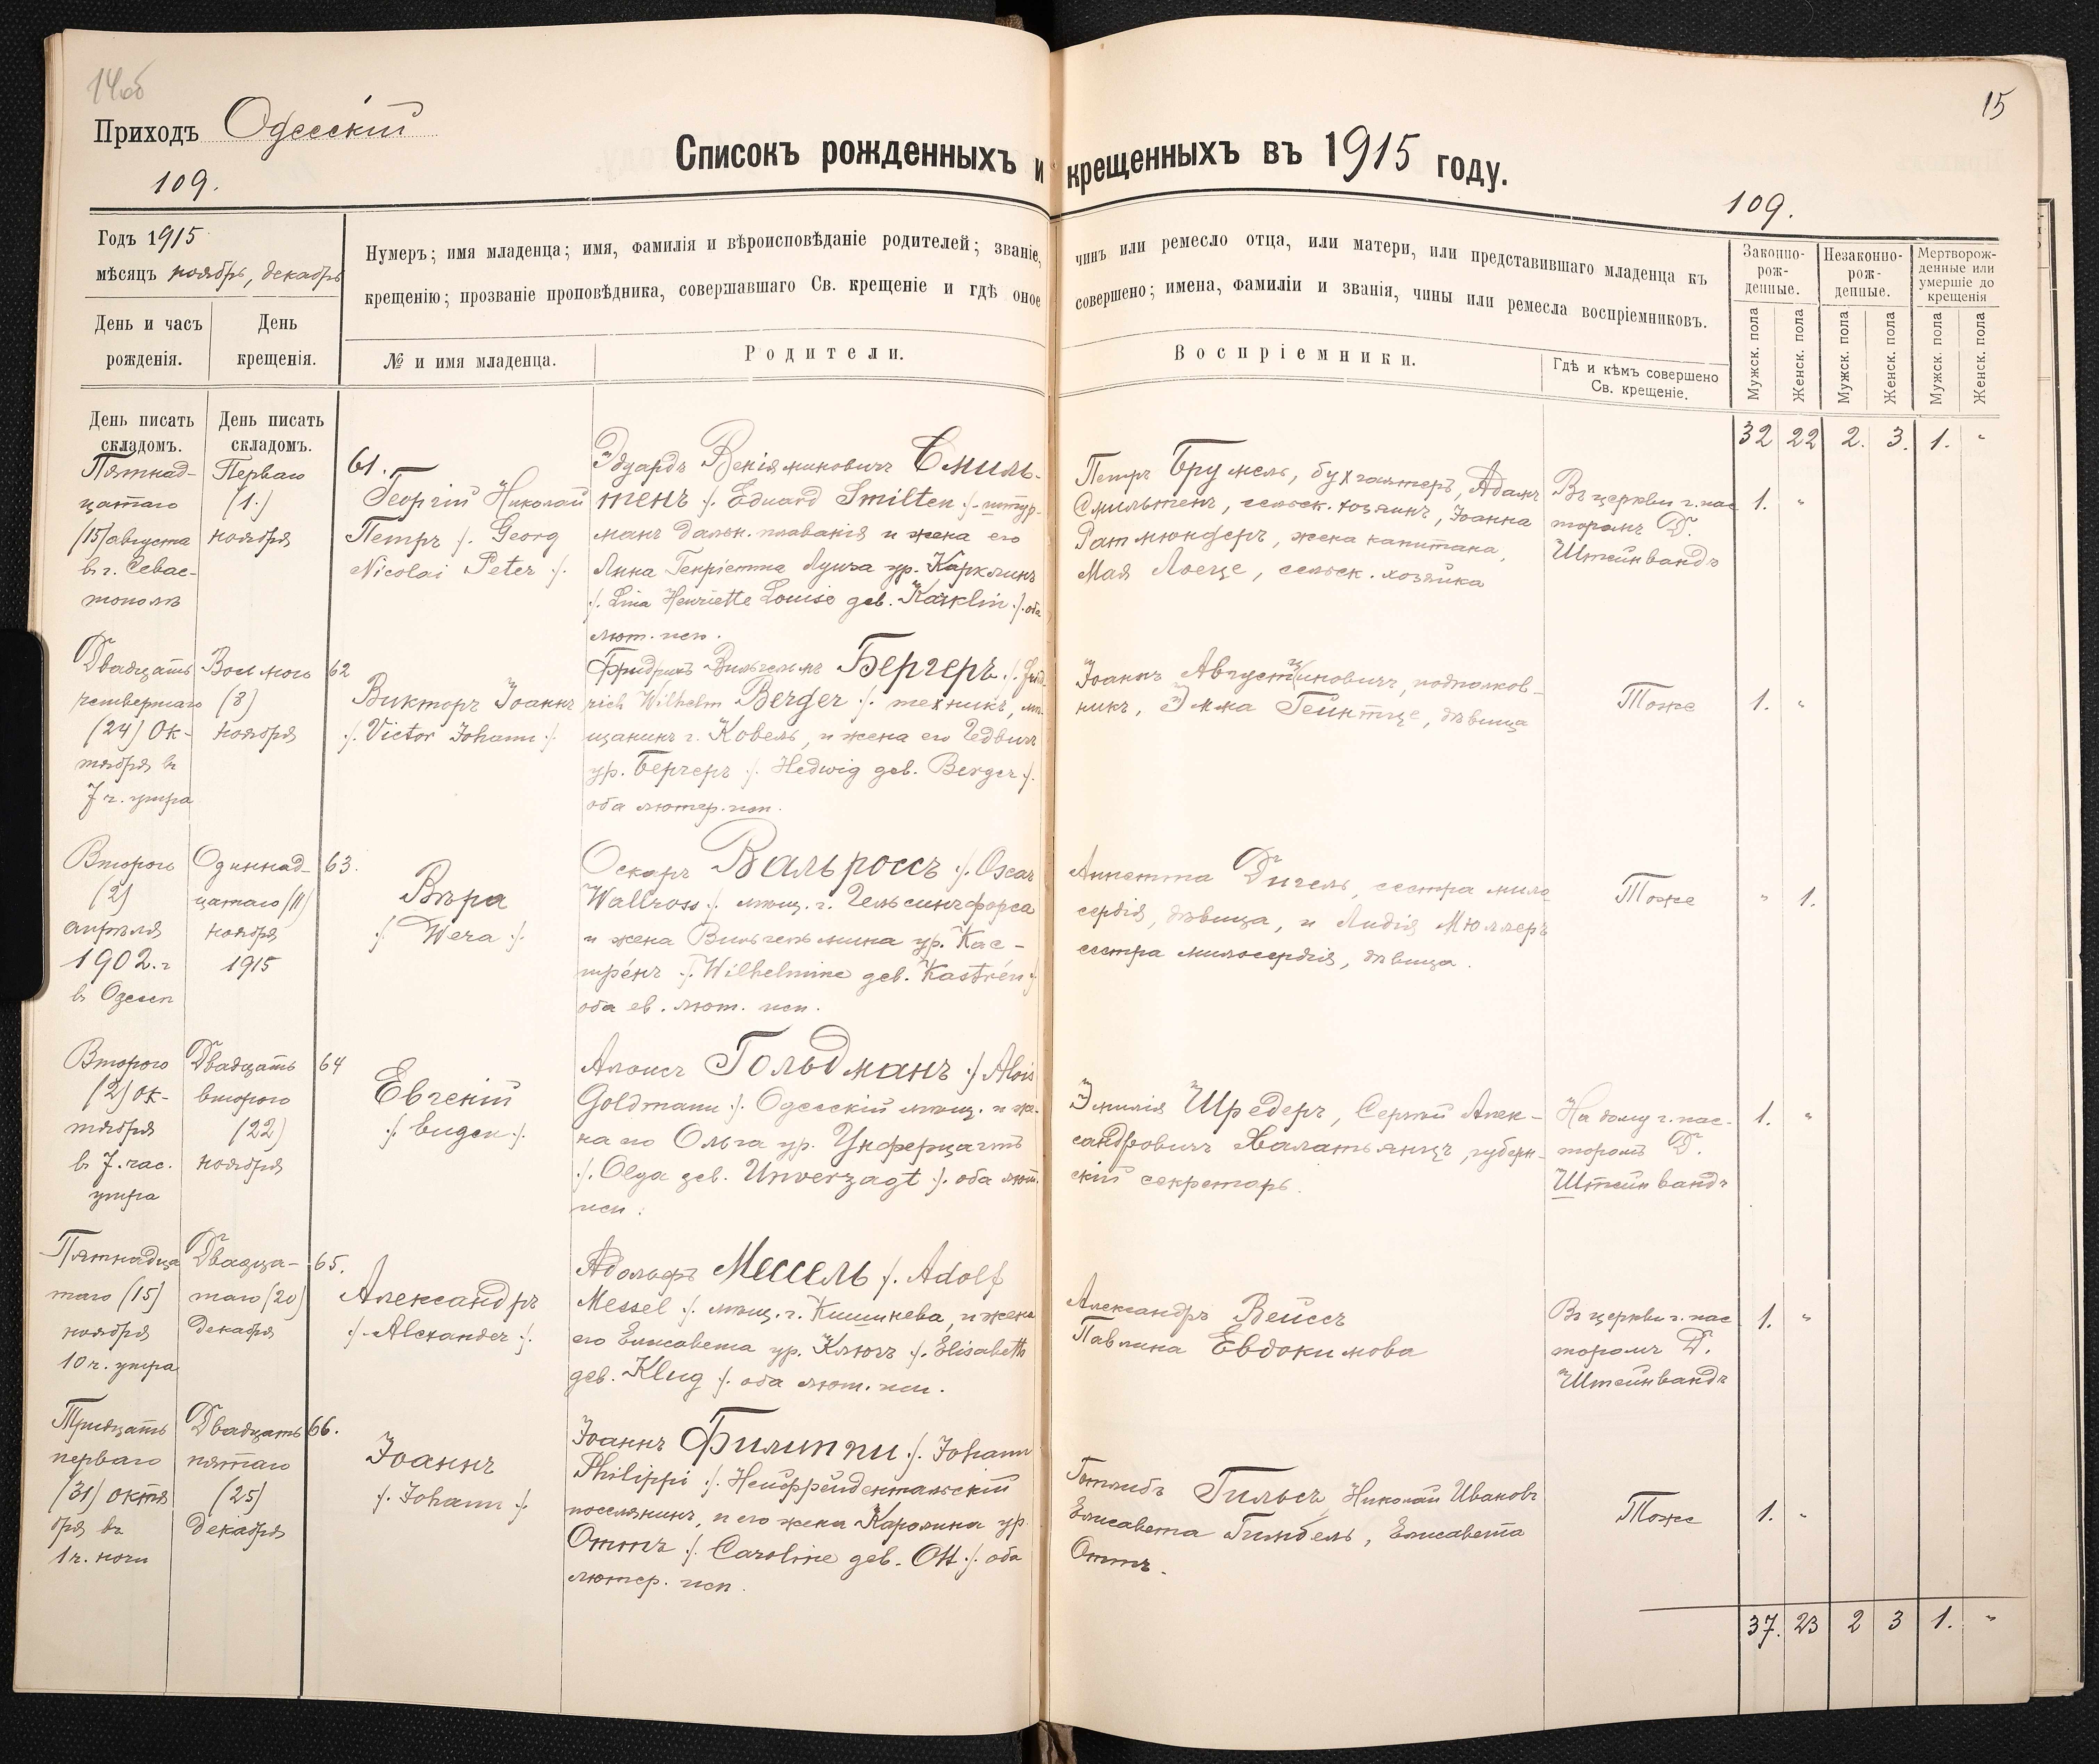 14об
Приходъ Одесскій
109.
Списокъ рожденныхъ и крещенныхъ въ 1915 году.
15
109.
Годъ 1915
мѣсяцъ ноябрь, декабрь
День и часъ рожденія.
День крещенія.
Нумеръ; имя младенца; имя, фамилія и вѣроисповѣданіе родителей; званіе, чинъ или ремесло отца, или матери, или представившаго младенца къ
крещенію; прозваніе проповѣдника, совершавшаго Св. крещеніе и гдѣ оное совершено; имена, фамиліи и званія, чины или ремесла воспріемниковъ.
№ и имя младенца.
Родители.
Воспріемники.
Гдѣ и кѣмъ совершено
Св. крещеніе.
Законно-
рож-
денные.
Незаконно-
рож-
денные.
Мертворож-
денные или
умершіе до
крещенія
Мужск. пола
Женск. пола
Мужск. пола
Женск. пола
Мужск. пола
Женск. пола
День писать
складомъ.
День писать
складомъ.
32 22 2. 3. 1. "
Пятнад-
цатаго
(15) августа
въ г. Севас-
тополѣ
Перваго
(1.)
ноября
61.
Георгій Николай
Петръ ./. Georg
Nicolai Peter ./.
Эдуардъ Веніяминовичъ Смиль-
тенъ ./. Eduard Smilten ./. штур-
манъ дальн. плаванія и жена его
Лина Генріетта Луиза ур. Карклинъ
./. Lina Henriette Louise geb. Karklin ./. оба
лют. исп.
Петръ Брумель, бухгалтеръ, Адамъ
Смильтенъ, сельск. хозяинъ, Іоанна
Ратмюндеръ, жена капитана,
Мая Лоеце, сельск. хозяйка
Въ церкви г. пас-
торомъ D.
Штейнвандъ
1. "
Двадцать
четвертаго
(24) Ок-
тября въ
7 ч. утра
Восьмого
(8)
ноября
62
Викторъ Іоаннъ
./. Victor Johann ./.
Фридрихъ Вильгельмъ Бергеръ ./. Fried-
rich Wilhelm Berger ./. техникъ, мѣ-
щанинъ г. Ковель, и жена его Гедвигъ
ур. Бергеръ ./. Hedwig geb. Berger ./.
оба лютер. исп.
Іоаннъ Августиновичъ, подполков-
никъ, Эмма Гейнтце, дѣвица
Тоже
1. "
Второго
(2)
апрѣля
1902. г
въ Одессѣ
Одиннад-
цатаго (11)
ноября
1915
63.
Вѣра
./. Wera ./.
Оскаръ Вальроссъ ./. Oscar
Wallross ./. мѣщ. г. Гельсингфорса
и жена Вильгельмина ур. Кас-
тренъ ./. Wilhelmine geb. Kastrén ./.
оба ев. лют. исп.
Аннетта Дигель, сестра мило-
сердія, дѣвица, и Лидія Мюллеръ
сестра милосердія, дѣвица.
Тоже
" 1.
Второго
(2) ок-
тября
въ 7. час.
утра
Двадцать
второго
(22)
ноября
64
Евгеній
./. Eugen ./.
Алоисъ Гольдманъ ./. Alois
Goldmann ./. Одесскій мѣщ. и же-
на его Ольга ур. Унферцагтъ
./. Olga geb. Unverzagt ./. оба лют.
исп.
Эмилія Шредеръ, Сергѣй Алек-
сандровичъ Халатьянцъ, губерн-
скій секретарь.
На дому г. пас-
торомъ D.
Штейнвандъ
1. "
Пятнадца
таго (15)
ноября
10 ч. утра
Двадца-
таго (20)
декабря
65.
Александръ
./. Alexander ./.
Адольфъ Мессель ./. Adolf
Messel ./. мѣщ. г. Кишинева, и жена
его Елисавета ур. Клюгъ ./. Elisabeth
geb. Klug ./. оба лют. исп.
Александръ Вейссъ
Павлина Евдокимова
Въ церкви г. пас
торомъ D.
Штейнвандъ
1. "
Тридцать
перваго
(31) октя
бря въ
1 ч. ночи
Двадцать
пятаго
(25)
декабря
66.
Іоаннъ
./. Johann ./.
Іоаннъ Филиппи ./. Johann
Philippi ./. Нейфрейдентальскій
поселянинъ, и его жена Каролина ур.
Оттъ ./. Caroline geb. Ott ./. оба
лютер. исп.
Готлибъ Гильсъ, Николай Ивановъ
Елисавета Гимбель, Елисавета
Оттъ.
Тоже
1. "
37. 23 2 3 1. "